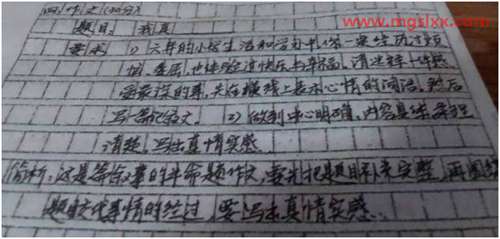 www.mgslxx.com
四、作文(30分)
题目: 我真
要求 1) 六年的小学生活和学习中,你一定经历过烦
恼、委屈,也体验过快乐与幸福。请选择一件感
受最深的事,先在横线上表示心情的词语,然后
写一篇记叙文。 2) 做到中心明确,内容具体,条理
清楚,写出真情实感。
简析:这是篇的半命题作文,要先把题目补充完整,再围绕
题目交代事情的经过,要写出真情实感。